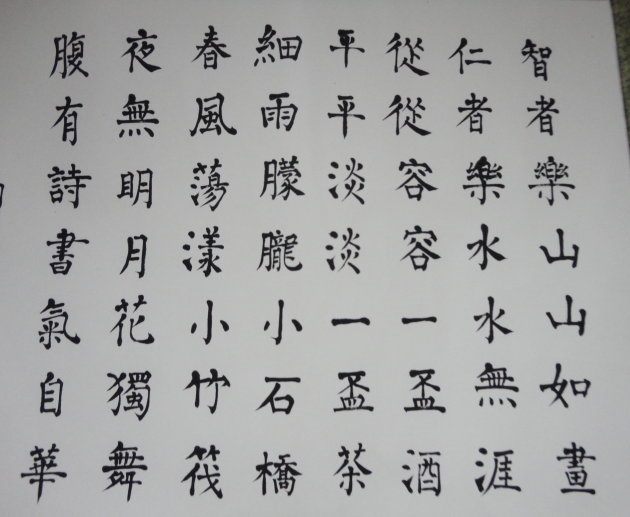 智者樂山山如畫
仁者樂水水無涯
從從容容一盃酒
平平淡淡一盃茶
細雨朦朧小石橋
春風蕩漾小竹筏
夜無明月花獨舞
腹有詩書氣自華